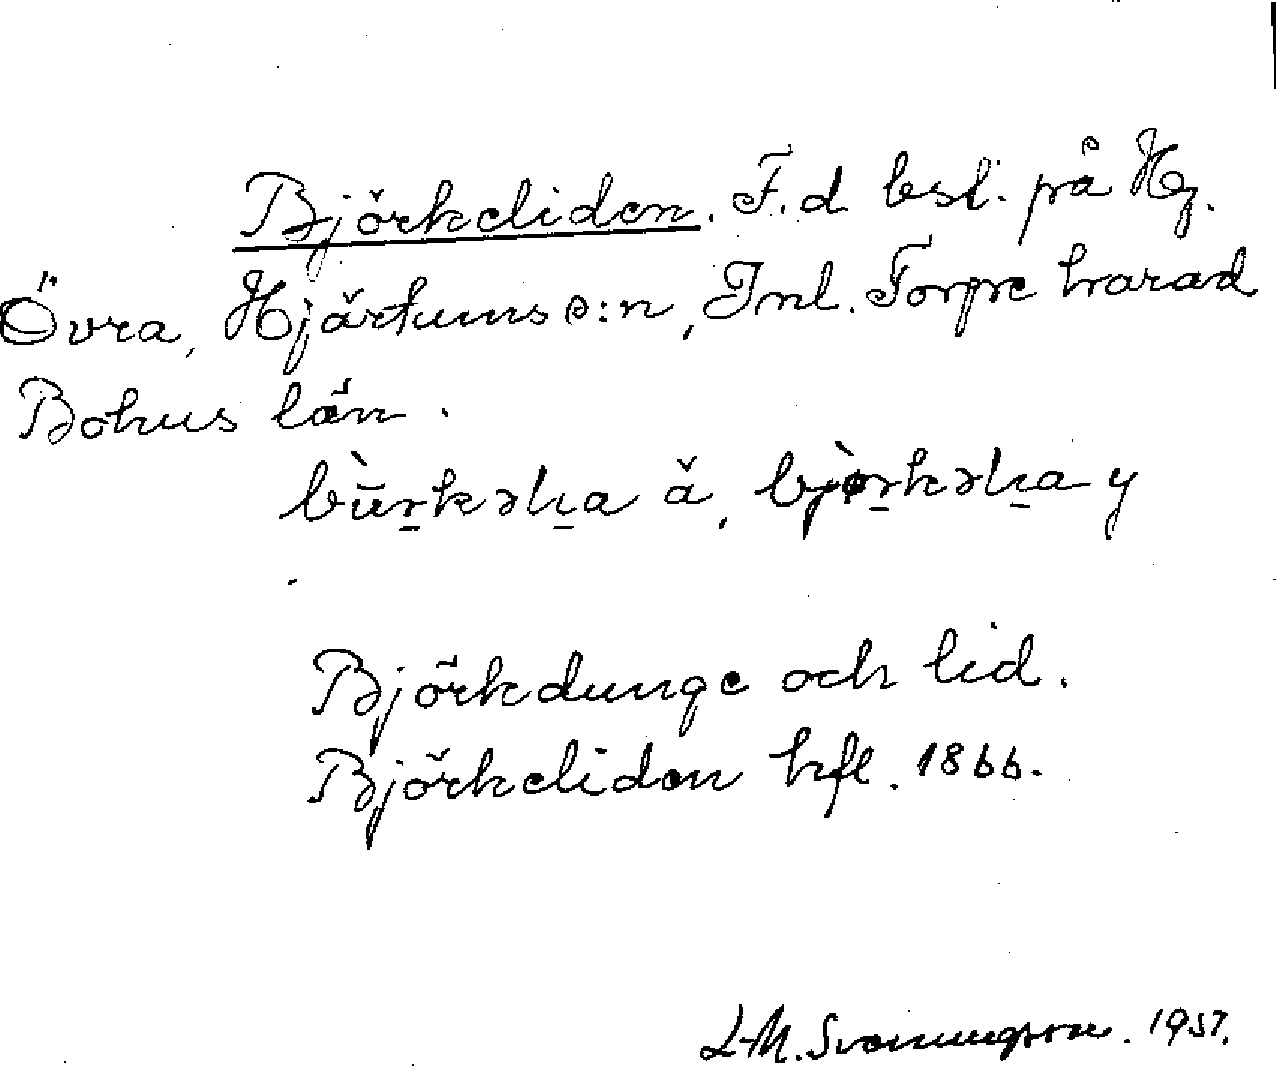 Björkeliden. F.d bsl. på Hg.
Övra, Hjärtums s:n, Inl. Torpe härad
Bohus län.
bjørkəlia y
Björkdunge och lid.
Björkeliden hfl. 1866.
L-M. Svenungsson. 1957.